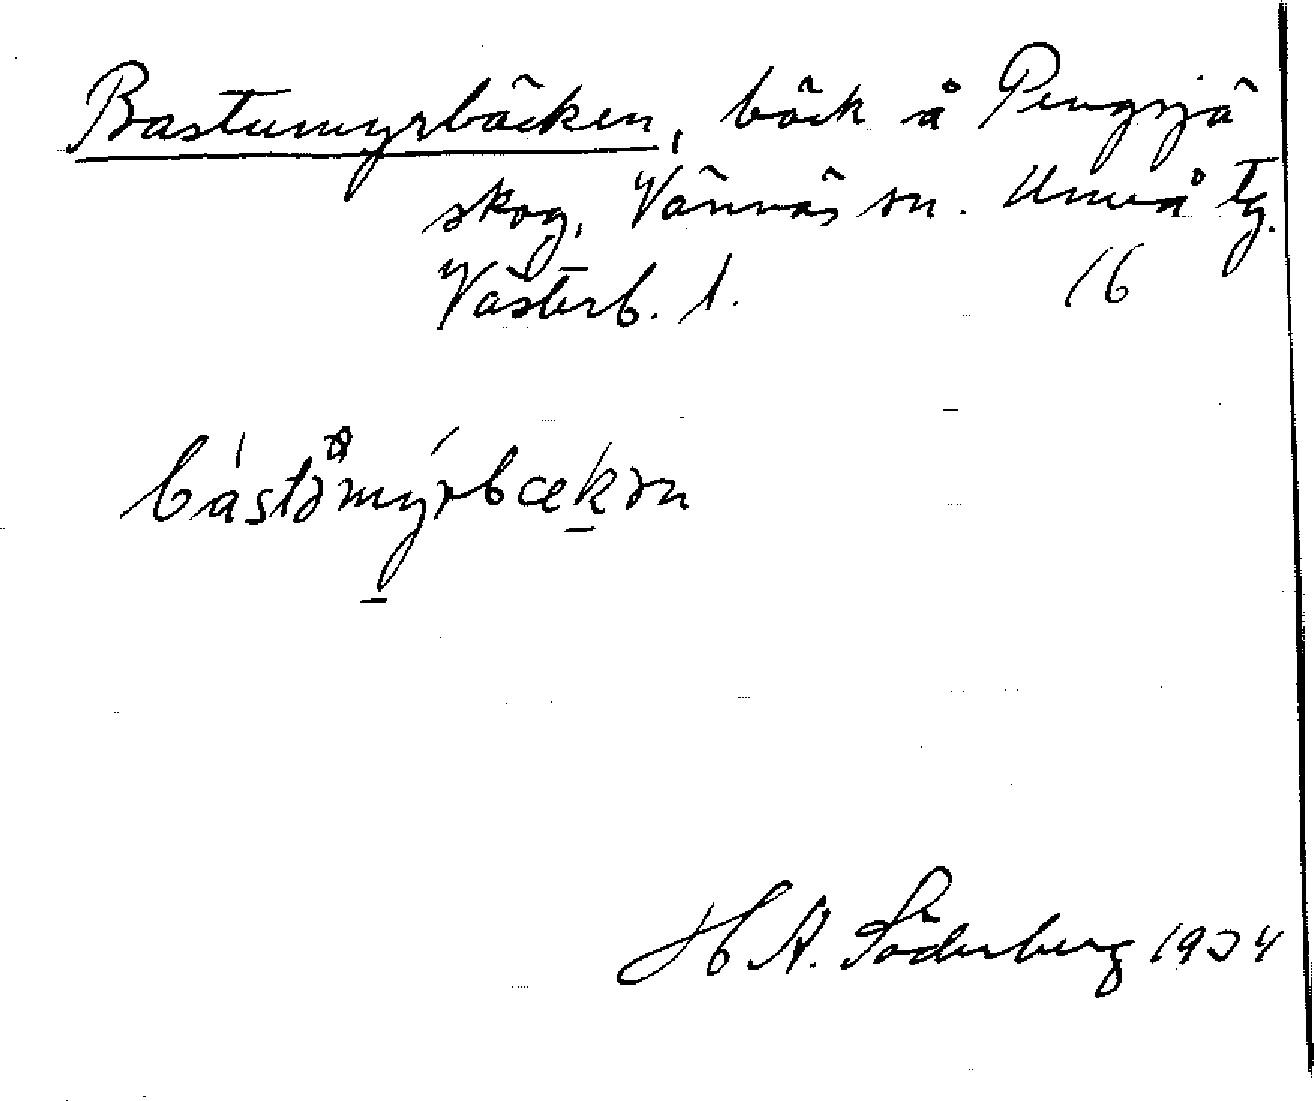 Bastumyrbäcken, bäck å Pengsjö
skog, Vännäs sn. Umeå tg.
Västerb. l. 16
bástəmy̱rbæḵən
H A. Söderberg 1924